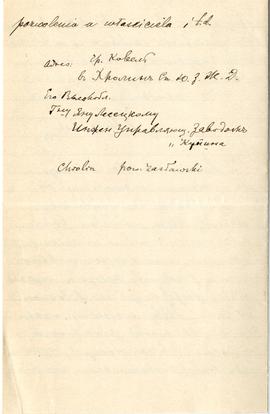 pozwolenia a właściciela i t.d.
Адрес: Гр. Ковель
в Кролинъ Ст. Ю. З. Ж. Д.
Его Высокобл.
Гну Яну Лесецкому
Инжен Управляющ. Заводомъ
"
Chrolin pow. Zasławski